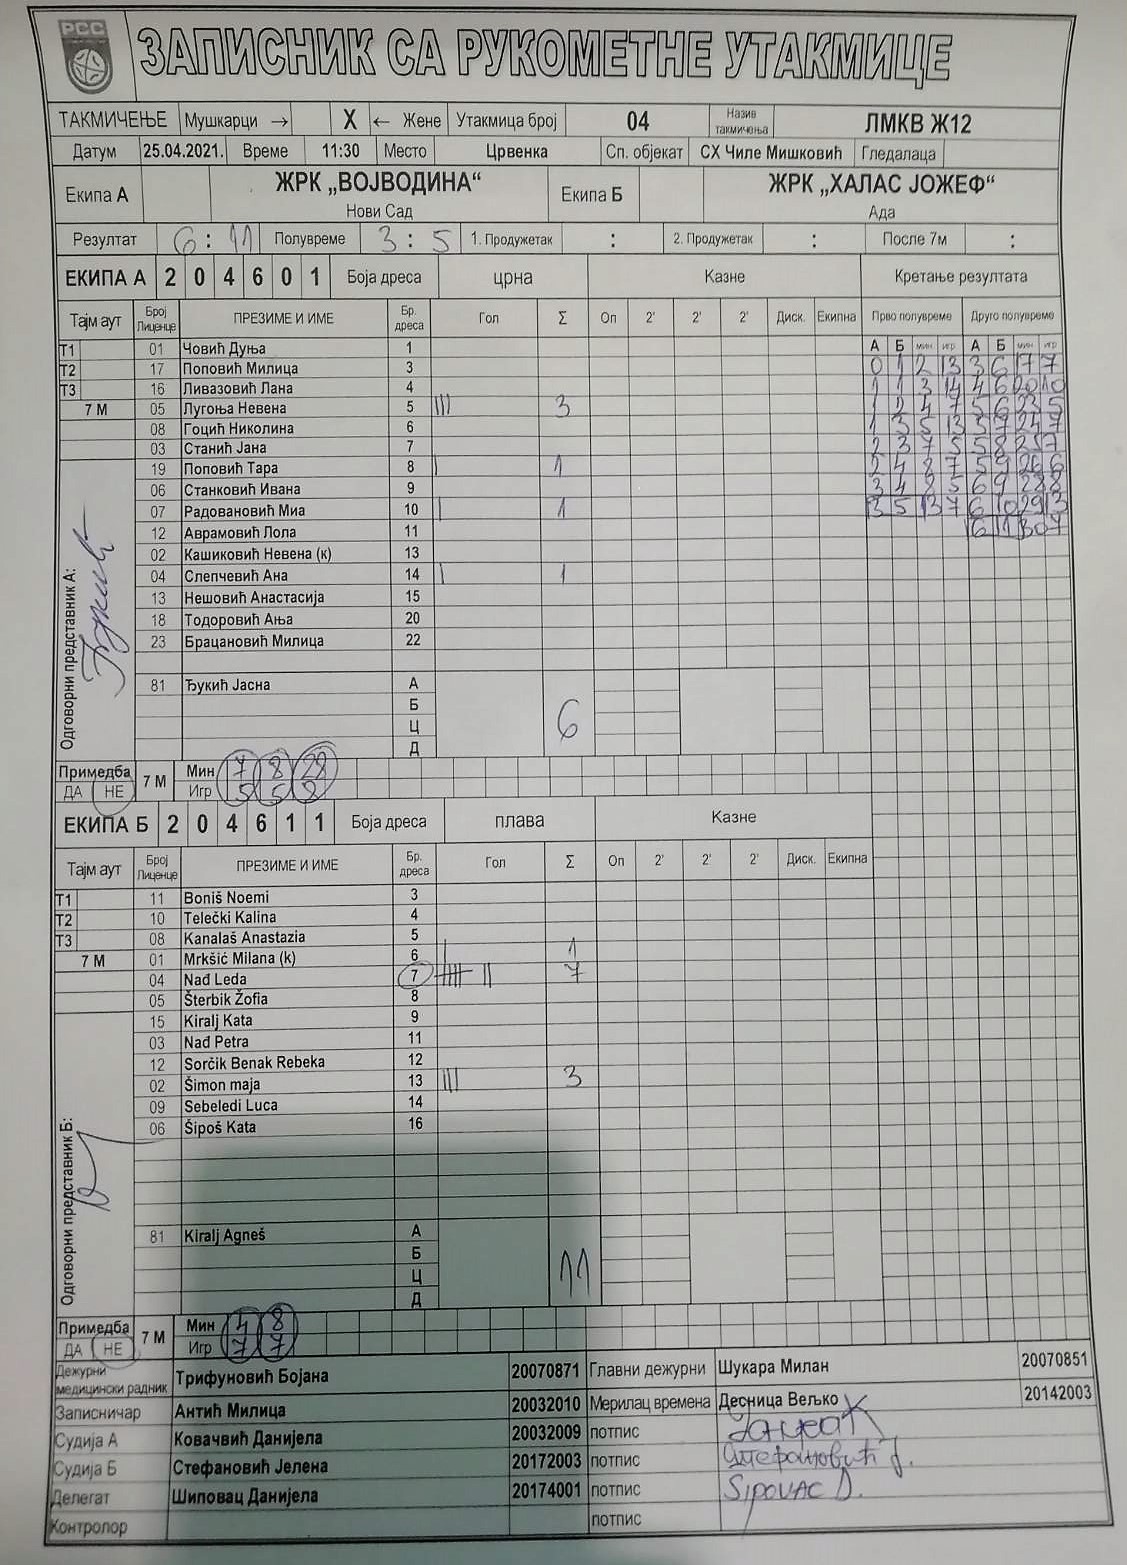 РСС
ЗАПИСНИК СА РУКОМЕТНЕ УТАКМИЦЕ
ТАКМИЧЕЊЕ Мушкарци → X ← Жене Утакмица број 04 Назив такмичења ЛМКВ Ж12
Датум 25.04.2021. Време 11:30 Место Црвенка Сп. објекат СХ Чиле Мишковић Гледалаца
Екипа А ЖРК „ВОЈВОДИНА“ Нови Сад Екипа Б ЖРК „ХАЛАС ЈОЖЕФ“ Ада
Резултат 6 : 11 Полувреме 3 : 5 1. Продужетак : 2. Продужетак : После 7м :
ЕКИПА А 2 0 4 6 0 1 Боја дреса црна Казне Кретање резултата
Тајм аут Број Лиценце ПРЕЗИМЕ И ИМЕ Бр. дреса Гол Σ Оп 2' 2' 2' Диск. Екипна Прво полувреме Друго полувреме
Т1 01 Човић Дуња 1 А Б мин игр А Б мин игр
Т2 17 Поповић Милица 3 0 1 2 13 3 6 17 7
Т3 16 Ливазовић Лана 4 1 1 3 14 4 6 20 10
7 М 05 Лугоња Невена 5 III 3 1 2 4 7 5 6 23 5
08 Гоцић Николина 6 1 3 5 13 5 7 24 7
03 Станић Јана 7 2 3 7 5 5 8 25 7
19 Поповић Тара 8 I 1 2 4 8 7 5 9 26 6
06 Станковић Ивана 9 3 4 8 5 6 9 28 8
07 Радовановић Миа 10 I 1 3 5 13 7 6 10 29 13
12 Аврамовић Лола 11 6 11 30 7
02 Кашиковић Невена (к) 13
04 Слепчевић Ана 14 I 1
13 Нешовић Анастасија 15
18 Тодоровић Ања 20
23 Брацановић Милица 22
Одговорни представник А: Ђукић
81 Ђукић Јасна А
Б
Ц 6
Д
Примедба 7 М Мин 7 8 28
ДА НЕ Игр 5 5 8
ЕКИПА Б 2 0 4 6 1 1 Боја дреса плава Казне
Тајм аут Број Лиценце ПРЕЗИМЕ И ИМЕ Бр. дреса Гол Σ Оп 2' 2' 2' Диск. Екипна
Т1 11 Boniš Noemi 3
Т2 10 Telečki Kalina 4
Т3 08 Kanalaš Anastazia 5
7 М 01 Mrkšić Milana (k) 6 I 1
04 Nađ Leda 7 IIII II 7
05 Šterbik Žofia 8
15 Kiralj Kata 9
03 Nađ Petra 11
12 Sorčik Benak Rebeka 12
02 Šimon maja 13 III 3
09 Sebeledi Luca 14
06 Šipoš Kata 16
Одговорни представник Б:
81 Kiralj Agneš А
Б
Ц 11
Д
Примедба 7 М Мин 4 8
ДА НЕ Игр 7 7
Дежурни медицински радник Трифуновић Бојана 20070871 Главни дежурни Шукара Милан 20070851
Записничар Антић Милица 20032010 Мерилац времена Десница Вељко 20142003
Судија А Ковачвић Данијела 20032009 потпис
Судија Б Стефановић Јелена 20172003 потпис Стефановић Ј.
Делегат Шиповац Данијела 20174001 потпис Sipovac D.
Контролор потпис